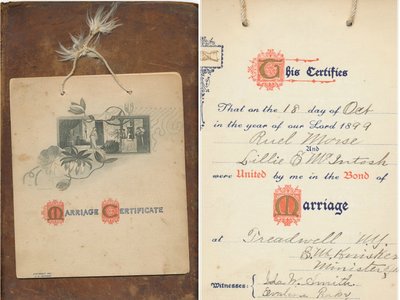 Marriage Certificate
This Certifies
That on the 18 day of Oct
in the year of our Lord 1899
Ruel Morse
And
Lillie B McIntosh
were United by me in the Bond of
Marriage
at Treadwell NY.
Minister
Witnesses:
W. Smith